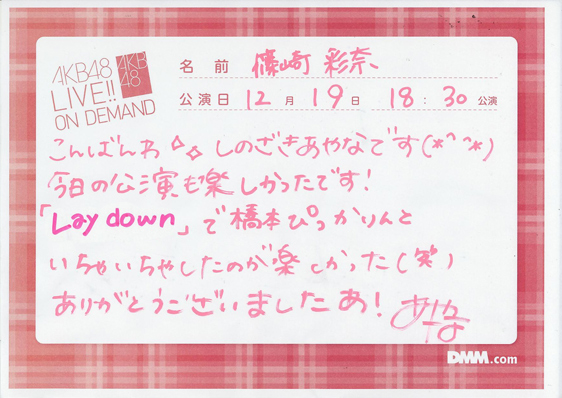 AKB48
LIVE!!
ON DEMAND
AKB
48
名前 篠崎 彩奈
公演日 12月 19日 18:30 公演
こんばんわ ☆☆ しのざきあやなです(*^^*)
今日の公演も楽しかったです!
「Lay down」で橋本ぴっかりんと
いちゃいちゃしたのが楽しかった(笑)
ありがとうございましたあ!
あやな
DMM.com